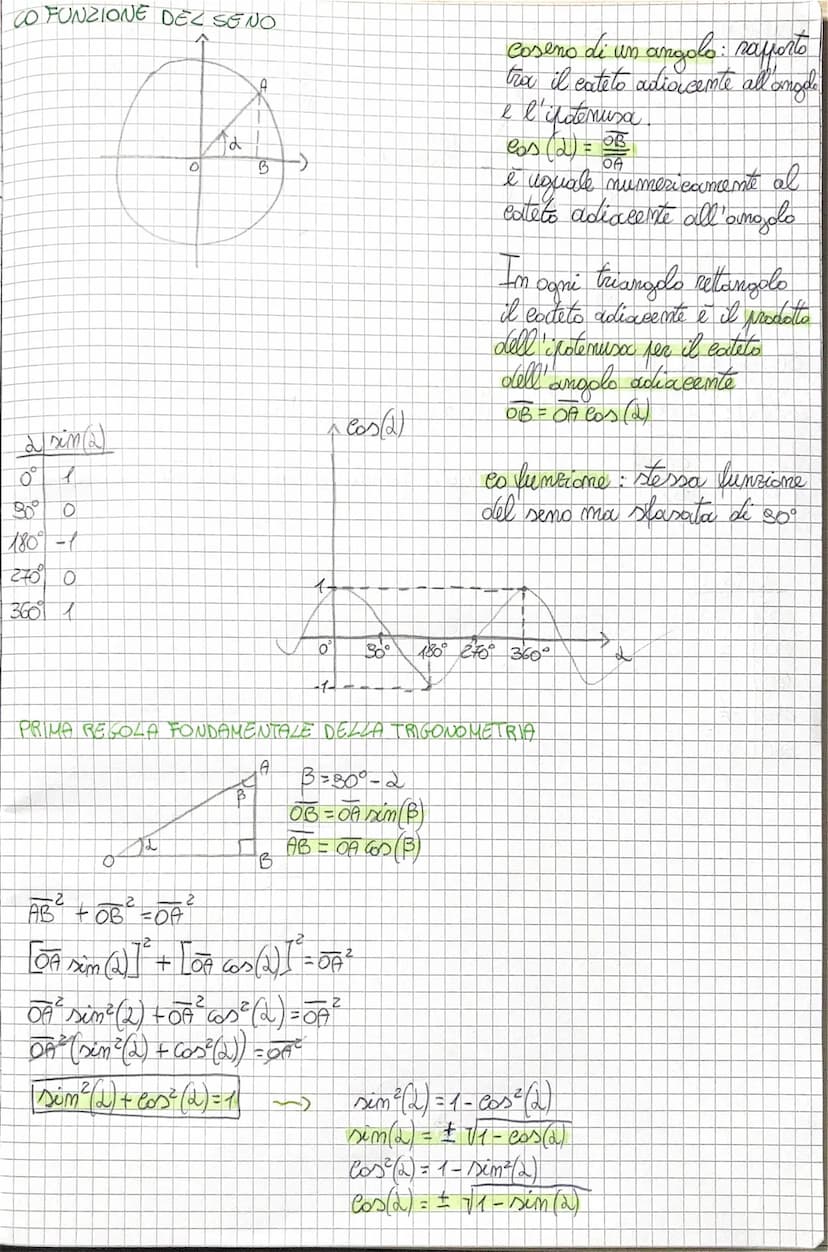 CO FUNZIONE DEL SENO
A
α
O
B
coseno di un angolo: rapporto
tra il cateto adiacente all'angolo
e l'ipotenusa.
cos(α) = OB/OA
è uguale numericamente al
cateto adiacente all'angolo
In ogni triangolo rettangolo
il cateto adiacente è il prodotto
dell'ipotenusa per il cateto
dell'angolo adiacente
O̅B̅ = O̅A̅ cos(α)
co funzione: stessa funzione
del seno ma sfasata di 90°
α sin(α)
0° 1
90° 0
180° -1
270° 0
360° 1
cos(α)
1
0° 90° 180° 270° 360° α
-1
PRIMA REGOLA FONDAMENTALE DELLA TRIGONOMETRIA
A
β
α
O
B
β = 90° - α
O̅B̅ = O̅A̅ sin(β)
A̅B̅ = O̅A̅ cos(β)
A̅B̅² + O̅B̅² = O̅A̅²
[O̅A̅ sin(α)]² + [O̅A̅ cos(α)]² = O̅A̅²
O̅A̅² sin²(α) + O̅A̅² cos²(α) = O̅A̅²
O̅A̅² (sin²(α) + cos²(α)) = O̅A̅²
sin²(α) + cos²(α) = 1 →
sin²(α) = 1 - cos²(α)
sin(α) = ± √1 - cos(α)
cos²(α) = 1 - sin²(α)
cos(α) = ± √1 - sin(α)